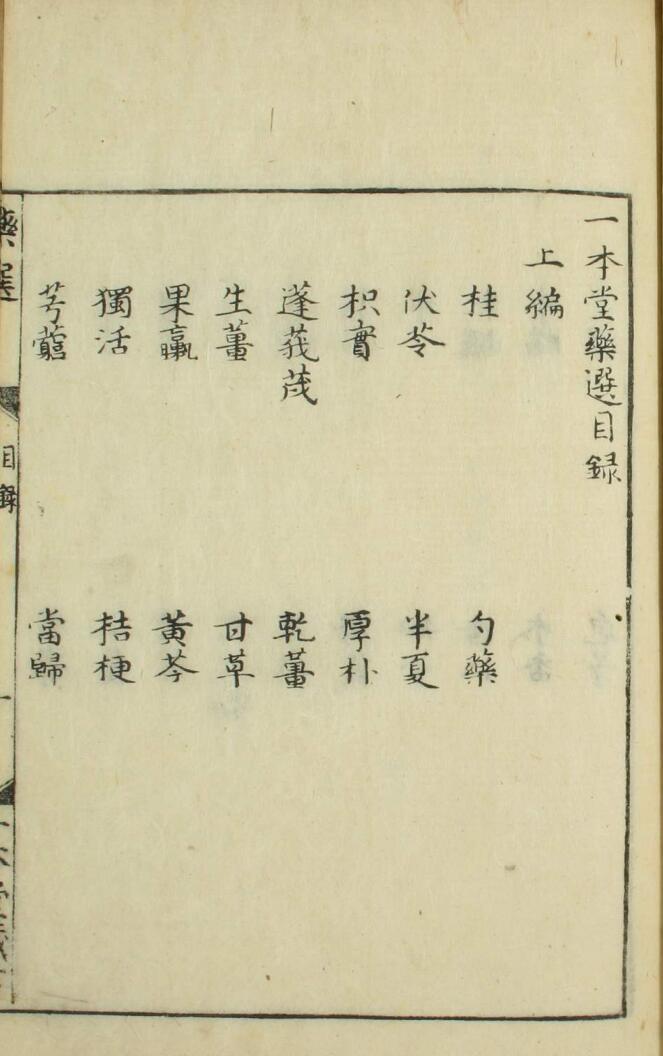 一本堂藥選目録
上編
桂 勺藥
伏苓 半夏
枳實 厚朴
蓬莪茂 乾薑
生薑 甘草
果蠃 黃芩
獨活 桔梗
芎藭 當歸
藥選 目録 一